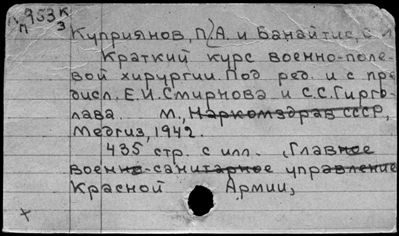 953 К
П З
Куприянов, П.А. и Банайтис, С
Краткий курс военно-поле-
вой хирургии. Под ред. и с пре
дисл. Е.И. Смирнова и С.С. Гирго-
лава. М., Наркомздрав СССР,
Медгиз, 1942.
435 стр. с илл. (Главное
военно-санитарное управление
Красной Армии,